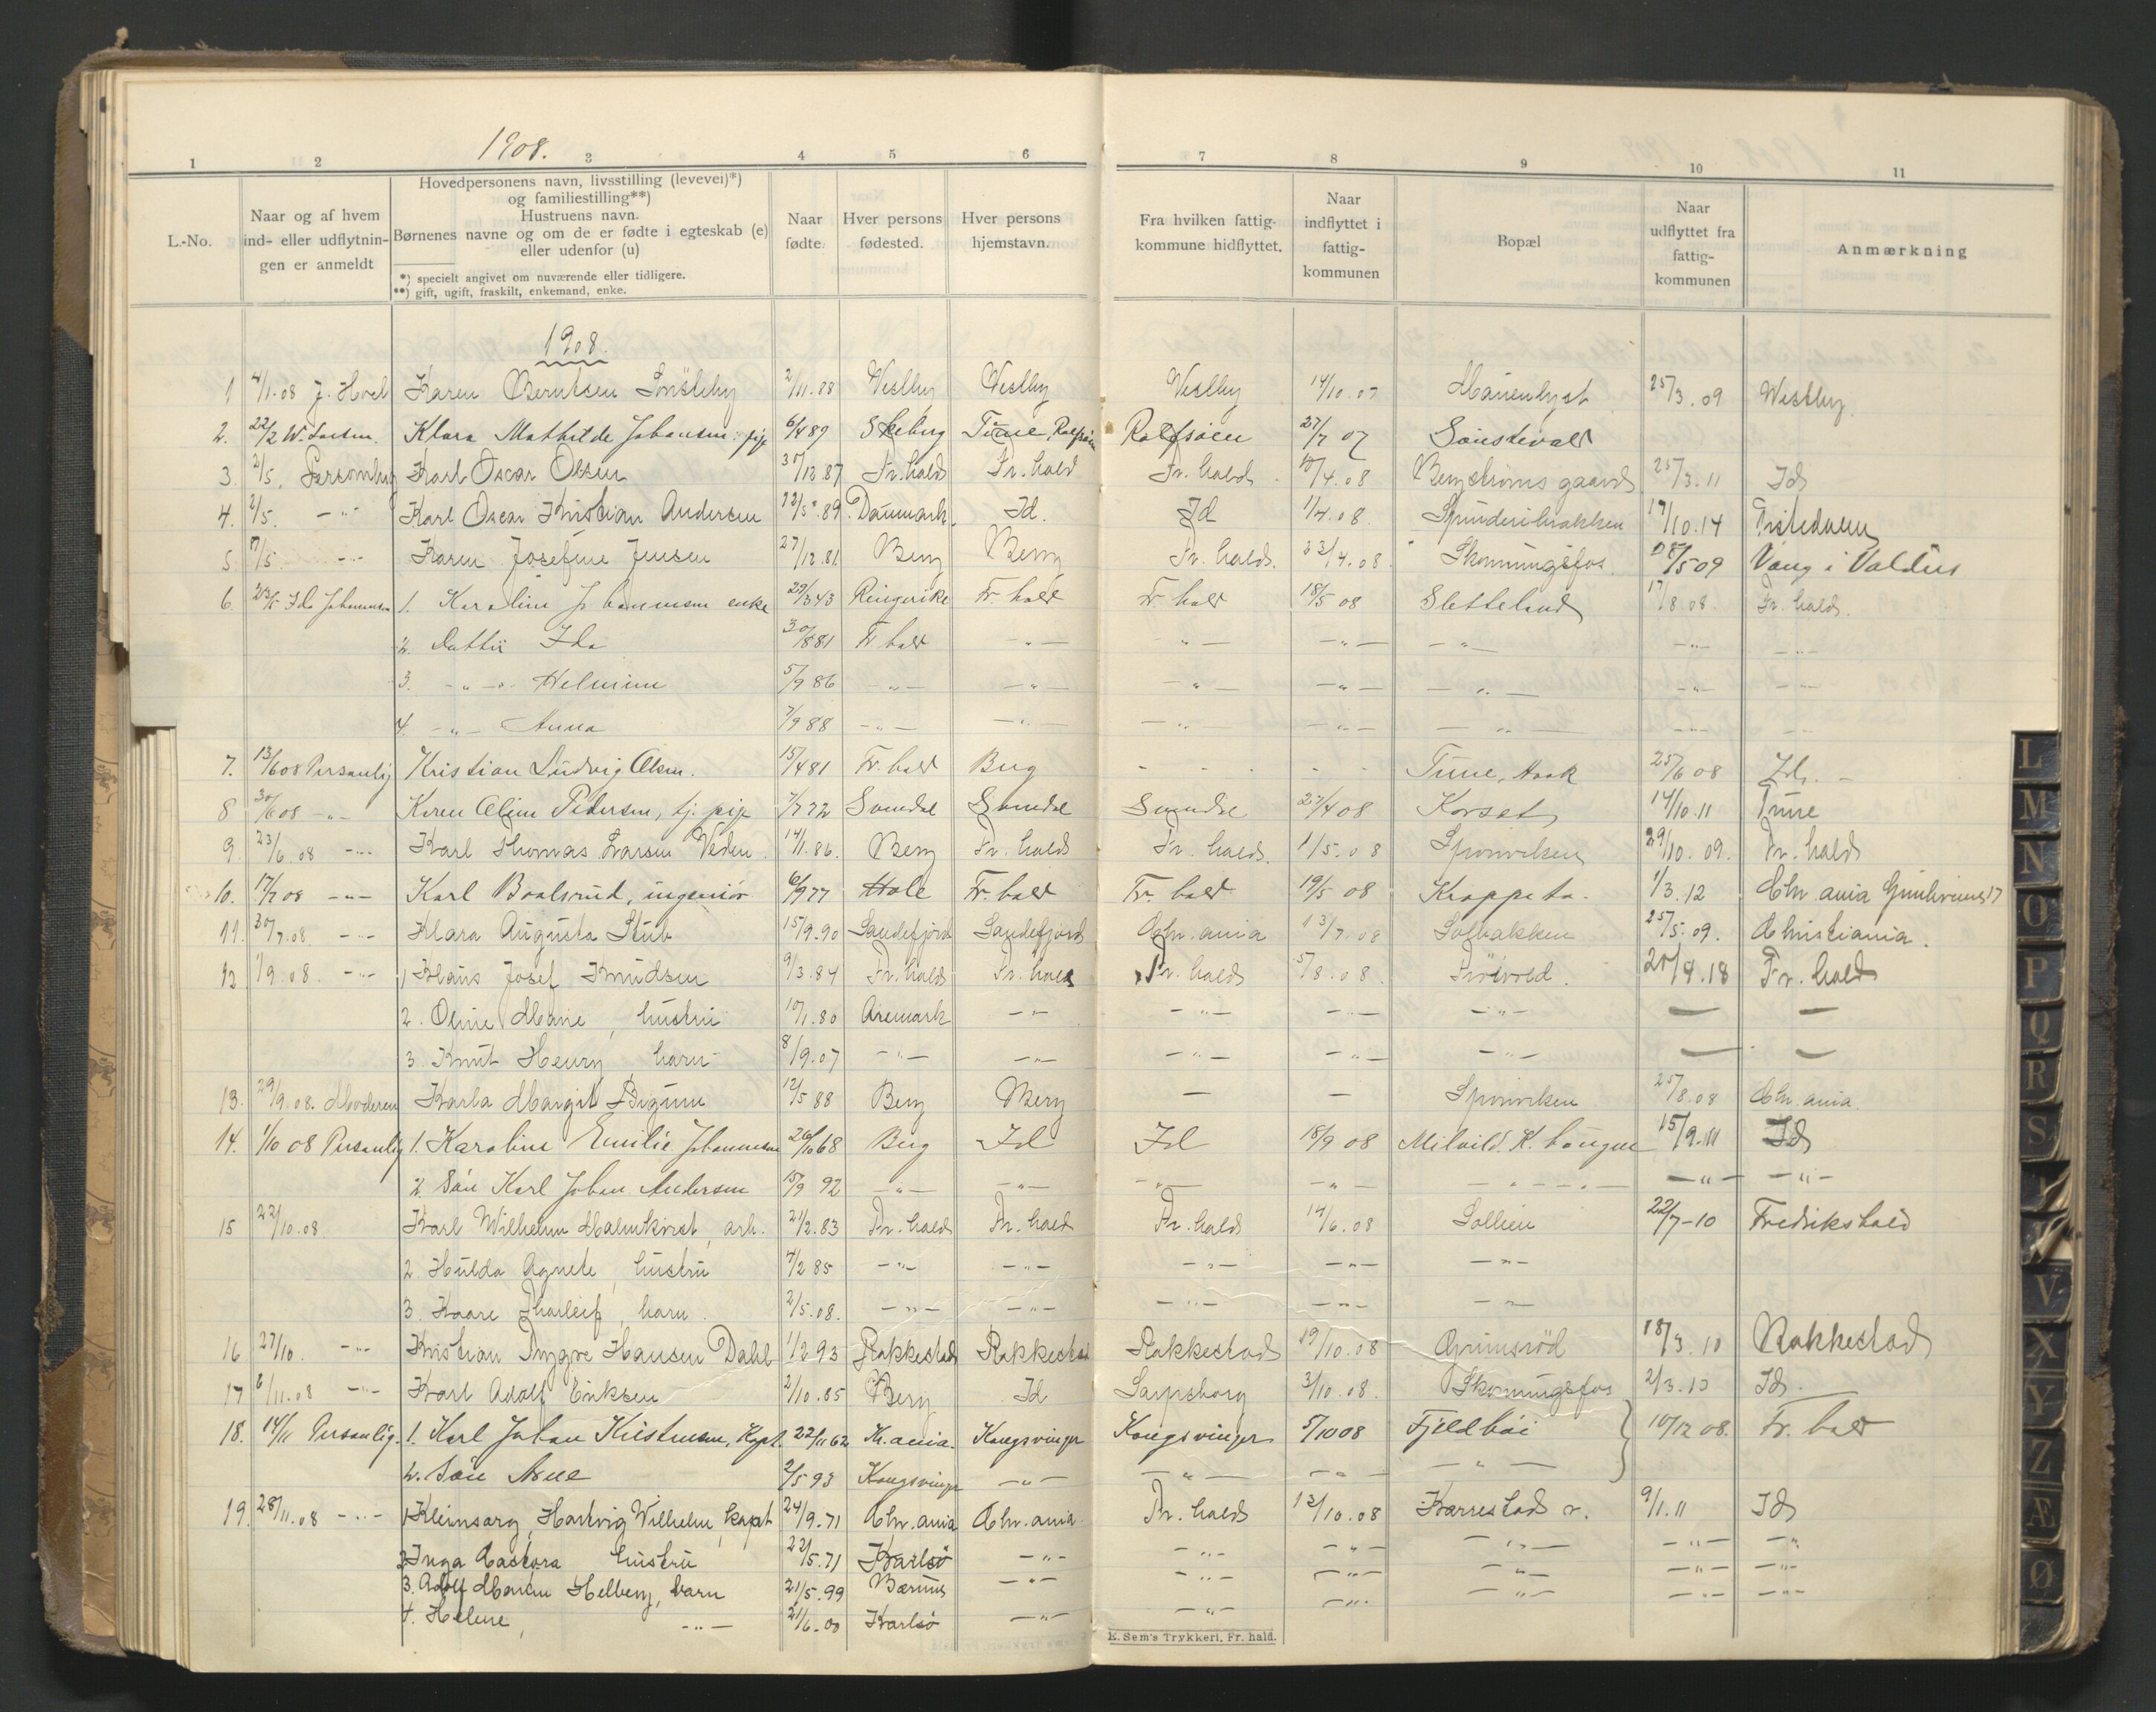 1908.
1 2 3 4 5 6 7 8 9 10 11
L.-No.
Naar og af hvem ind- eller udflytningen er anmeldt
Hovedpersonens navn, livsstilling (levevei)*)
og familiestilling**)
Hustruens navn.
Børnenes navne og om de er fødte i egteskab (e)
eller udenfor (u)
*) specielt angivet om nuværende eller tidligere.
**) gift, ugift, fraskilt, enkemand, enke.
Naar fødte.
Hver persons fødested.
Hver persons hjemstavn.
Fra hvilken fattigkommune hidflyttet.
Naar indflyttet i fattigkommunen
Bopæl
Naar udflyttet fra fattigkommunen
Anmærkning
1908.
1 4/1.08 J. Hvel Karen Berntsen 2/11.88 Vestby Vestby Vestby 14/10.07 Marienlyst 25/3.09 Vestby
2. 22/2 Klara Mathilde Johansen pige 6/4 89 Skeberg Tune, Rolfsøen Rolfsøen 27/7 07
3. 2/5. Personlig Karl Oscar Olsen 30/12.87 Fr. hald Fr. hald Fr. hald 10/4.08 Bergstrøms gaard 25/3.11 Id
4. 2/5. -"- Karl Oscar Kristian Andersen 22/5.89. Danmark. Id. Id 1/4.08. Spinderibakken 19/10.14 Tistedalen
5. 7/5 -"- Karen Josefine Jensen 27/12.81 Berg Berg Fr. hald. 23/4.08. Skonningsfos 28/5 09 Vang i Valdres
6. 23/5 Ida Johannesen 1. Karoline Johannesen enke 29/3 43 Ringerike Fr. hald Fr hald 18/5 08 Sletteland 17/8 08. Fr. hald.
2. Datter Ida 30/8 81 Fr hald -"- -"- -"- -"- -"- -"-
3. -"- Helmine 5/9 86 -"- -"- -"- -"- -"- -"- -"-
4. -"- Anna 7/9 88 -"- -"- -"- -"- -"- -"- -"-
7. 13/6 08 Personlig Kristian Ludvig Olsen. 15/4 81 Fr. hald Berg - - - - - Tune, Haak 25/6 08 Id. -
8 30/6 08 -"- Karen Oline Pedersen, tj. pige 7/7 72 Svindal Svindal Svindal 27/4 08 Korset 14/10.11 Tune
9. 23/6.08 -"- Karl Thomas Larsen Veden. 14/1.86. Berg Fr. hald Fr. hald. 1/5.08 Sponviken 29/10.09. Fr. hald
10. 17/7 08 -"- Karl Braaterud, ingeniør 6/9 77 Hole Fr. hald Fr. hald 19/5 08 Krappeto. 1/3.12 Chr.ania
11. 30/7.08 -"- Klara Augusta Stub 15/9.90 Sandefjord Sandefjord Chr.ania 13/7 08 Solbakken 25/5.09. Christiania.
12 1/9.08. -"- 1 Klaus Josef Knudsen 9/3.84 Fr. hald Fr. hald Fr. hald 5/8.08. 20/4.18 Fr. hald
2. Oline Marie, hustru 10/1.80 Aremark -"- -"- -"- -"- — —
3. Knut Henry, barn 8/9.07 -"- -"- -"- -"- -"- — —
13. 29/9.08. Moderen Karla Margit 12/5 88 Berg Berg — — Sponviken 25/8.08 Chr.ania.
14. 1/10 08 Personlig 1. Karoline Emilie Johannesen 26/10 68 Berg Id Id 18/9 08 15/9.11 Id
2. Søn Karl Johan Andersen 15/9 92 -"- -"- -"- -"- -"- -"- -"-
15 22/10.08 Karl Wilhelm Malmkvist, arb. 21/2.83 Fr. hald Fr. hald Fr. hald 14/6.08 Sollien 22/7-10 Fredrikshald
2. Hulda Agnete, hustru 4/2 85 -"- -"- -"- -"- -"-
3. Kaare Tharleif, barn. 2/5.08. -"- -"- -"- -"- -"-
16 27/10. -"- Kristian Trygve Hansen Dahl 1/2 93 Rakkestad Rakkestad Rakkestad 19/10.08 Grimsrød 18/3.10 Rakkestad
17 6/11.08 -"- Karl Adolf Eriksen 2/10.85 Berg Id Sarpsborg 3/10.08. Skonningsfos 2/3.10 Id.
18. 14/11 Personlig. 1. Karl Johan Kristensen, Kapt. 22/11 62 Kr.ania. Kongsvinger Kongsvinger 5/10 08 Fjeldhøi 10/12 08. Fr. hald
2. Søn Arne 2/5 93 Kongsvinger -"- -"- -"- -"-
19. 28/11.08 -"- 1 Kleinsorg, Hartvig Wilhelm, kapt 24/9.71 Chr.ania Chr.ania. Fr. hald 12/10.08 Karrestad v. 9/1.11 Id
2 Inga Castora hustru 22/5.71 Karlsö -"- -"- -"- -"- -"- -"-
3. Adolf Martin Helberg, barn 21/5.99 Bærum -"- -"- -"- -"- -"- -"-
4. Helene, -"- 21/6.00 Karlsö -"- -"- -"- -"- -"- -"-
E. Sem's Trykkeri, Fr. hald.
L
M
N
O
P
Q
R
S
V
X
Y
Z
Æ
Ø